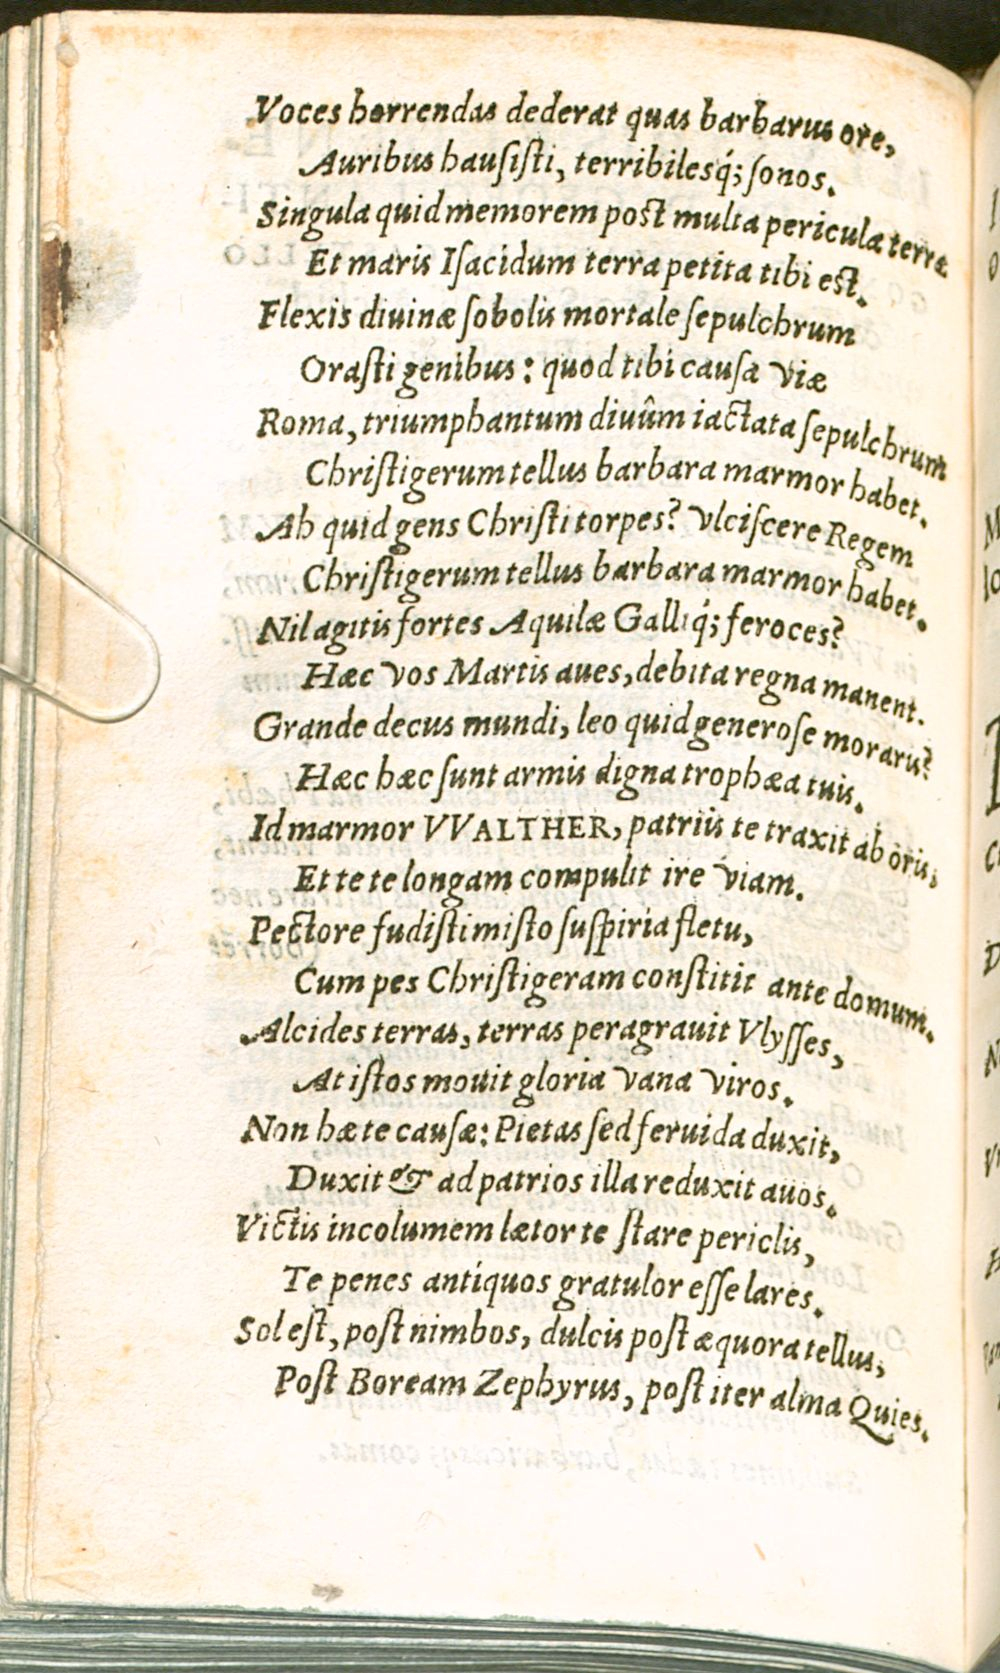 Voces horrendas dederat quas barbarus ore,
Auribus hauſiſti, terribilesq́; ſonos.
Singula quid memorem post multa pericula terræ
Et maris Iſacidum terra petita tibi est.
Flexis diuinæ ſobolis mortale ſepulchrum
Oraſti genibus: quod tibi cauſa viæ
Roma, triumphantum diuûm iactata ſepulchrum
Chriſtigerum tellus barbara marmor habet.
Ah quid gens Chriſti torpes? vlciſcere Regem
Chriſtigerum tellus barbara marmor habet.
Nil agitis fortes Aquilæ Galliq́; feroces?
Hæc vos Martis aues, debita regna manent.
Grande decus mundi, leo quid generoſe moraris?
Hæc hæc ſunt armis digna trophæa tuis.
Id marmor VVALTHER, patriis te traxit ab oris,
Et te te longam compulit ire viam.
Pectore fudiſti miſto ſuſpiria fletu,
Cum pes Chriſtigeram conſtitit ante domum.
Alcides terras, terras peragrauit Vlyſſes,
At iſtos mouit gloria vana viros.
Non hæ te cauſæ: Pietas ſed feruida duxit,
Duxit & ad patrios illa reduxit auos.
Victis incolumem lætor te ſtare periclis,
Te penes antiquos gratulor eſſe lares.
Sol eſt, poſt nimbos, dulcis poſt æquora tellus,
Poſt Boream Zephyrus, poſt iter alma Quies.